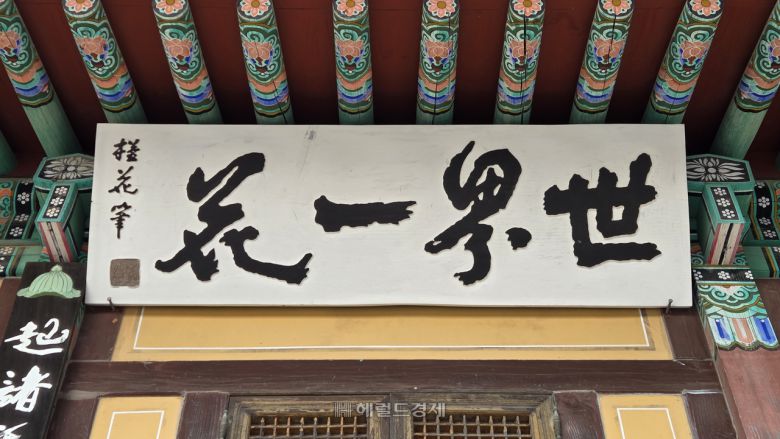 世界一花
槿花筆
起諸
헤럴드경제